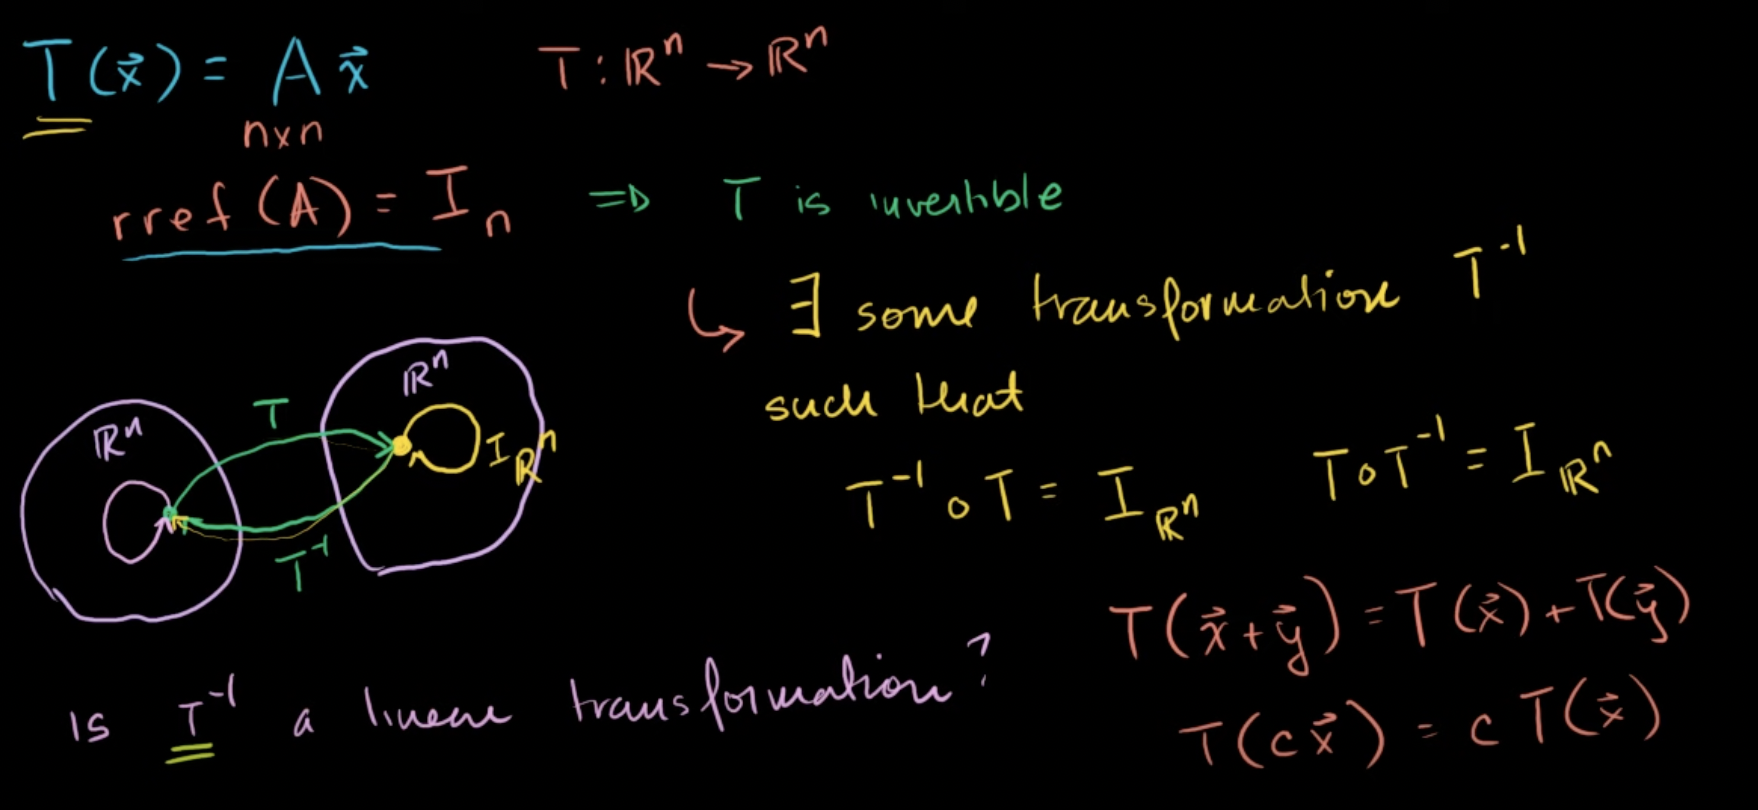 T(x⃗) = A x⃗
T : ℝⁿ → ℝⁿ
n×n
rref (A) = Iₙ ⇒ T is invertible
↳ ∃ some transformation T⁻¹
such that
T⁻¹ ∘ T = I_ℝⁿ
T∘T⁻¹ = I_ℝⁿ
ℝⁿ
T
ℝⁿ
I_ℝⁿ
T⁻¹
T(x⃗+y⃗) = T(x⃗) + T(y⃗)
Is T⁻¹ a linear transformation?
T(c x⃗) = c T(x⃗)